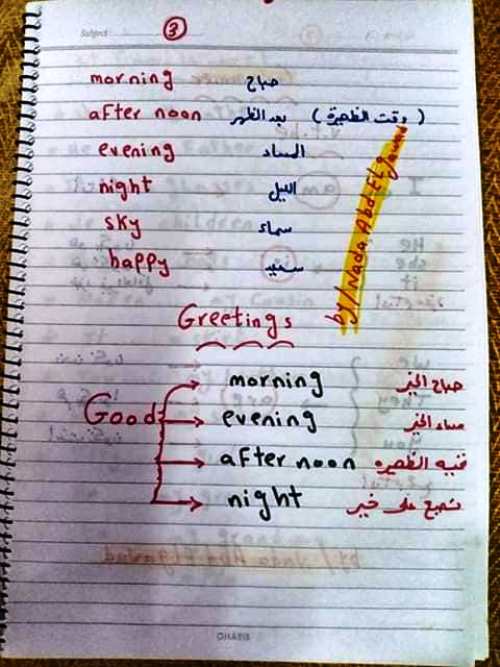 Subject
3
morning صباح
after noon بعد الظهر ( وقت الظهيرة )
evening المساء
night الليل
sky سماء
happy سعيد
by/Nada Abd Elgawad
Greetings
Good
morning صباح الخير
evening مساء الخير
after noon الظهيره
night تصبح على خير